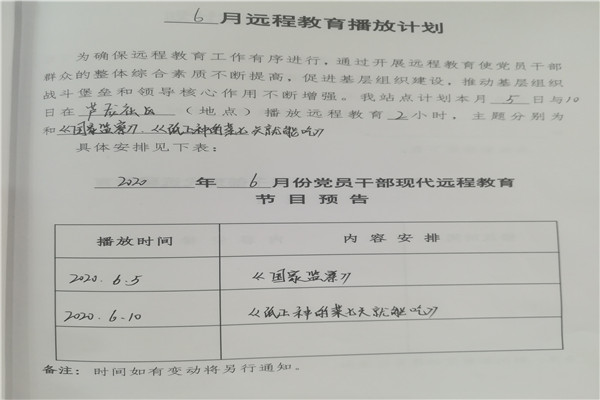 6 月远程教育播放计划
为确保远程教育工作有序进行，通过开展远程教育使党员干部
群众的整体综合素质不断提高，促进基层组织建设，推动基层组织
战斗堡垒和领导核心作用不断增强。我站点计划本月 5 日与10
日在（地点）播放远程教育 2 小时，主题分别为
和《国家监察》、《纸上种的菜七天就能吃》
具体安排见下表：
2020 年 6 月份党员干部现代远程教育
节目预告
播放时间 内容安排
2020.6.5 《国家监察》
2020.6.10 《纸上种的菜七天就能吃》
备注：时间如有变动将另行通知。